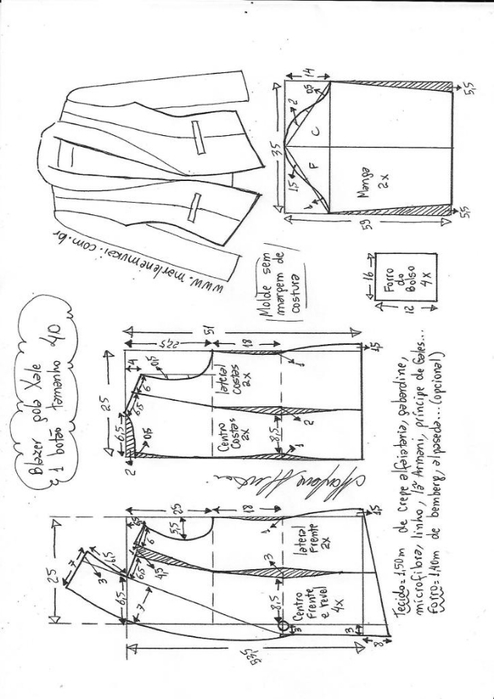 Blazer gola Xale
e 1 botão tamanho 40
www.marlenemukai.com.br
Molde sem
margem de
costura
14
35
59
5,5
5,5
2
1,5
1
F
C
Manga
2x
16
12
Forro
do
Bolso
4x
25
22,5
51
18
4
6
6,5
6,5
2
8,5
1
2
1
1,5
lateral
Costas
2x
Centro
Costas
2x
25
25
18
5,5
6
6,5
6,5
7
7
3
3
8,5
1,5
3
3
8
lateral
Frente
2x
Centro
Frente
e revel
4x
Tecido=1,50m de Crepe alfaiataria, gabardine,
microfibra, linho, lã Armani, príncipe de Gales...
Forro=1,40m de bemberg, alpaseda...(opcional)